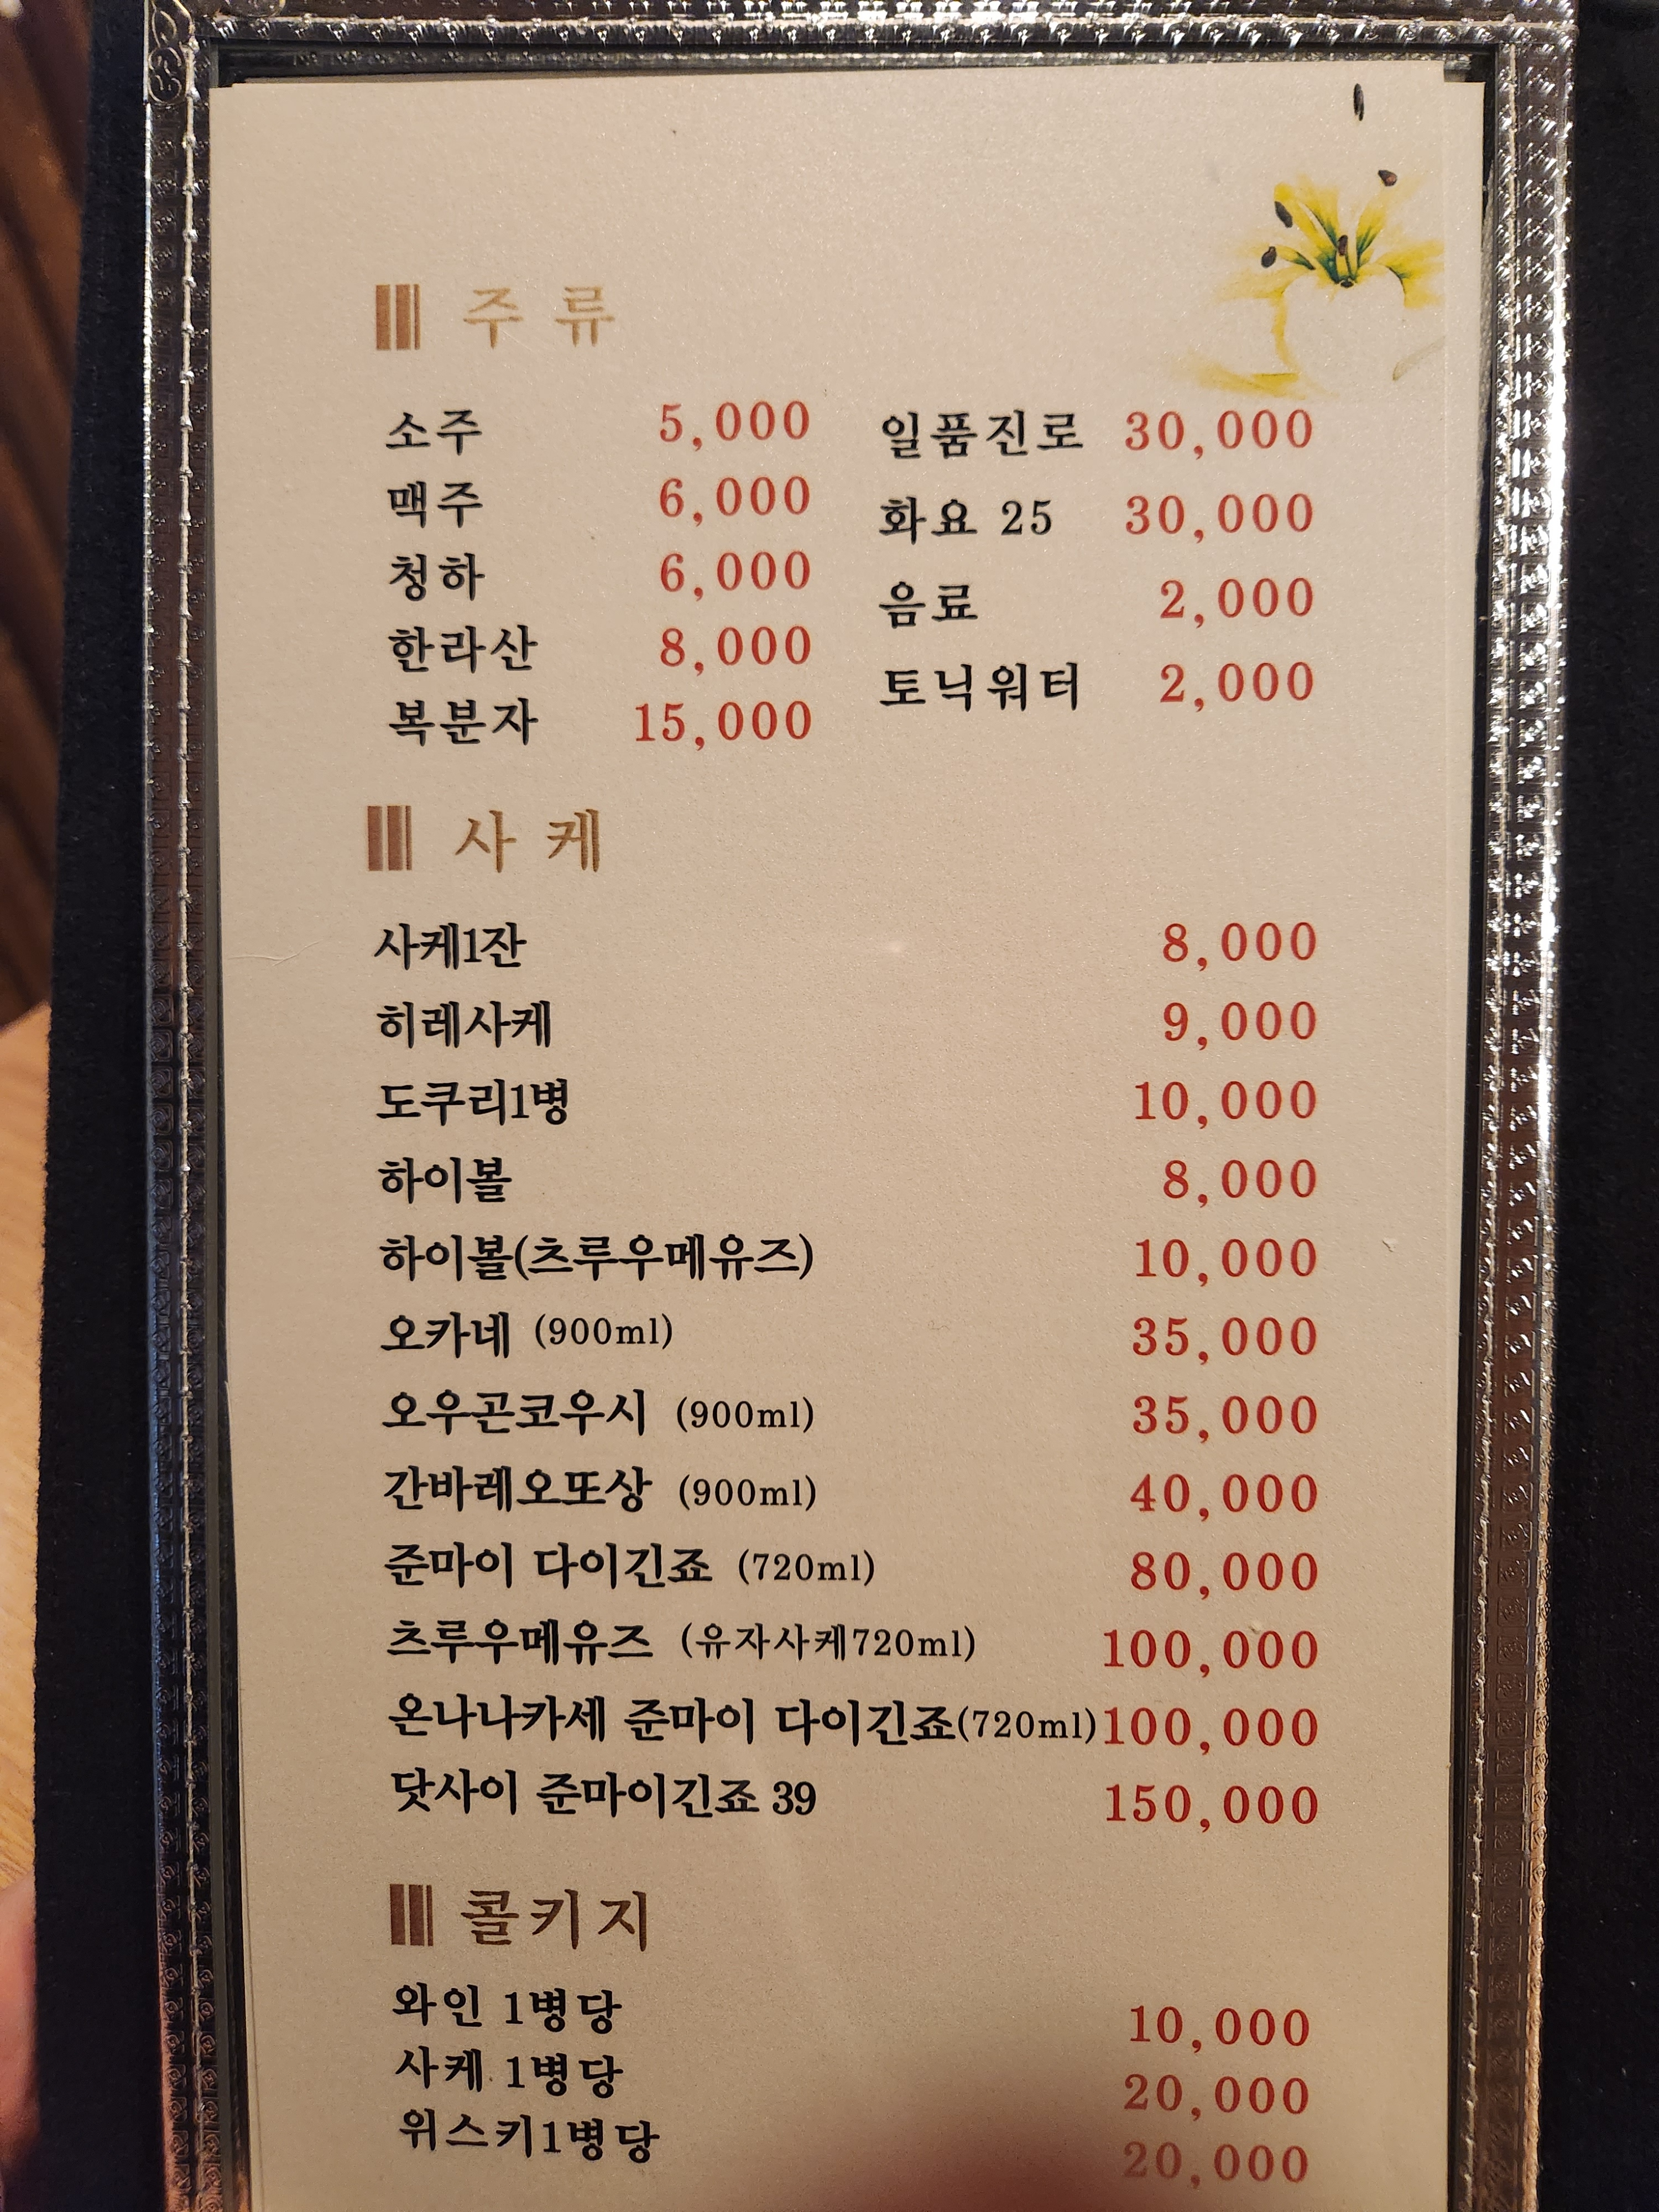 주류
소주 5,000
맥주 6,000
청하 6,000
한라산 8,000
복분자 15,000
일품진로 30,000
화요 25 30,000
음료 2,000
토닉워터 2,000
사케
사케1잔 8,000
히레사케 9,000
도쿠리1병 10,000
하이볼 8,000
하이볼(츠루우메유즈) 10,000
오카네 (900ml) 35,000
오우곤코우시 (900ml) 35,000
간바레오또상 (900ml) 40,000
준마이 다이긴죠 (720ml) 80,000
츠루우메유즈 (유자사케720ml) 100,000
온나나카세 준마이 다이긴죠(720ml) 100,000
닷사이 준마이긴죠 39 150,000
콜키지
와인 1병당 10,000
사케 1병당 20,000
위스키1병당 20,000